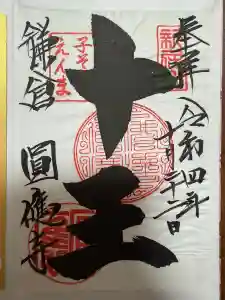 奉拝
令和四年
十月二十二日
十王
子そだて
えんま
鎌倉
圓應寺